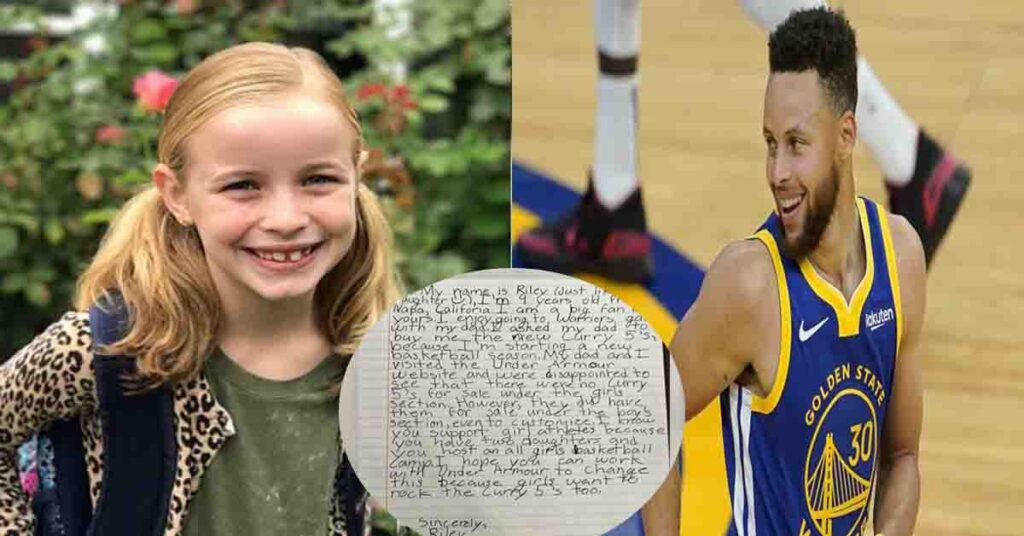 My name is Riley (Just
I'm 9 years old
Napa, Califonia. I am a big fan
yours. I enjoy going to Warriors
with my dad. I asked my dad to
buy me the new Curry 5's,
because I'm starting a new
basketball season. My dad and I
visited the Under Armour
website and were disappointed to
see that there were no Curry
5's for sale under the girls
section. However, they did have
them for sale under the boy's
section, even to customize. I know
you support girl athletes because
you have two daughters and
you host an all girls basketball
camp. I hope you can work
with Under Armour to change
this because girls want to
rock the Curry 5's too.
Sincerely,
Riley
Rakuten
GOLDEN STATE
30